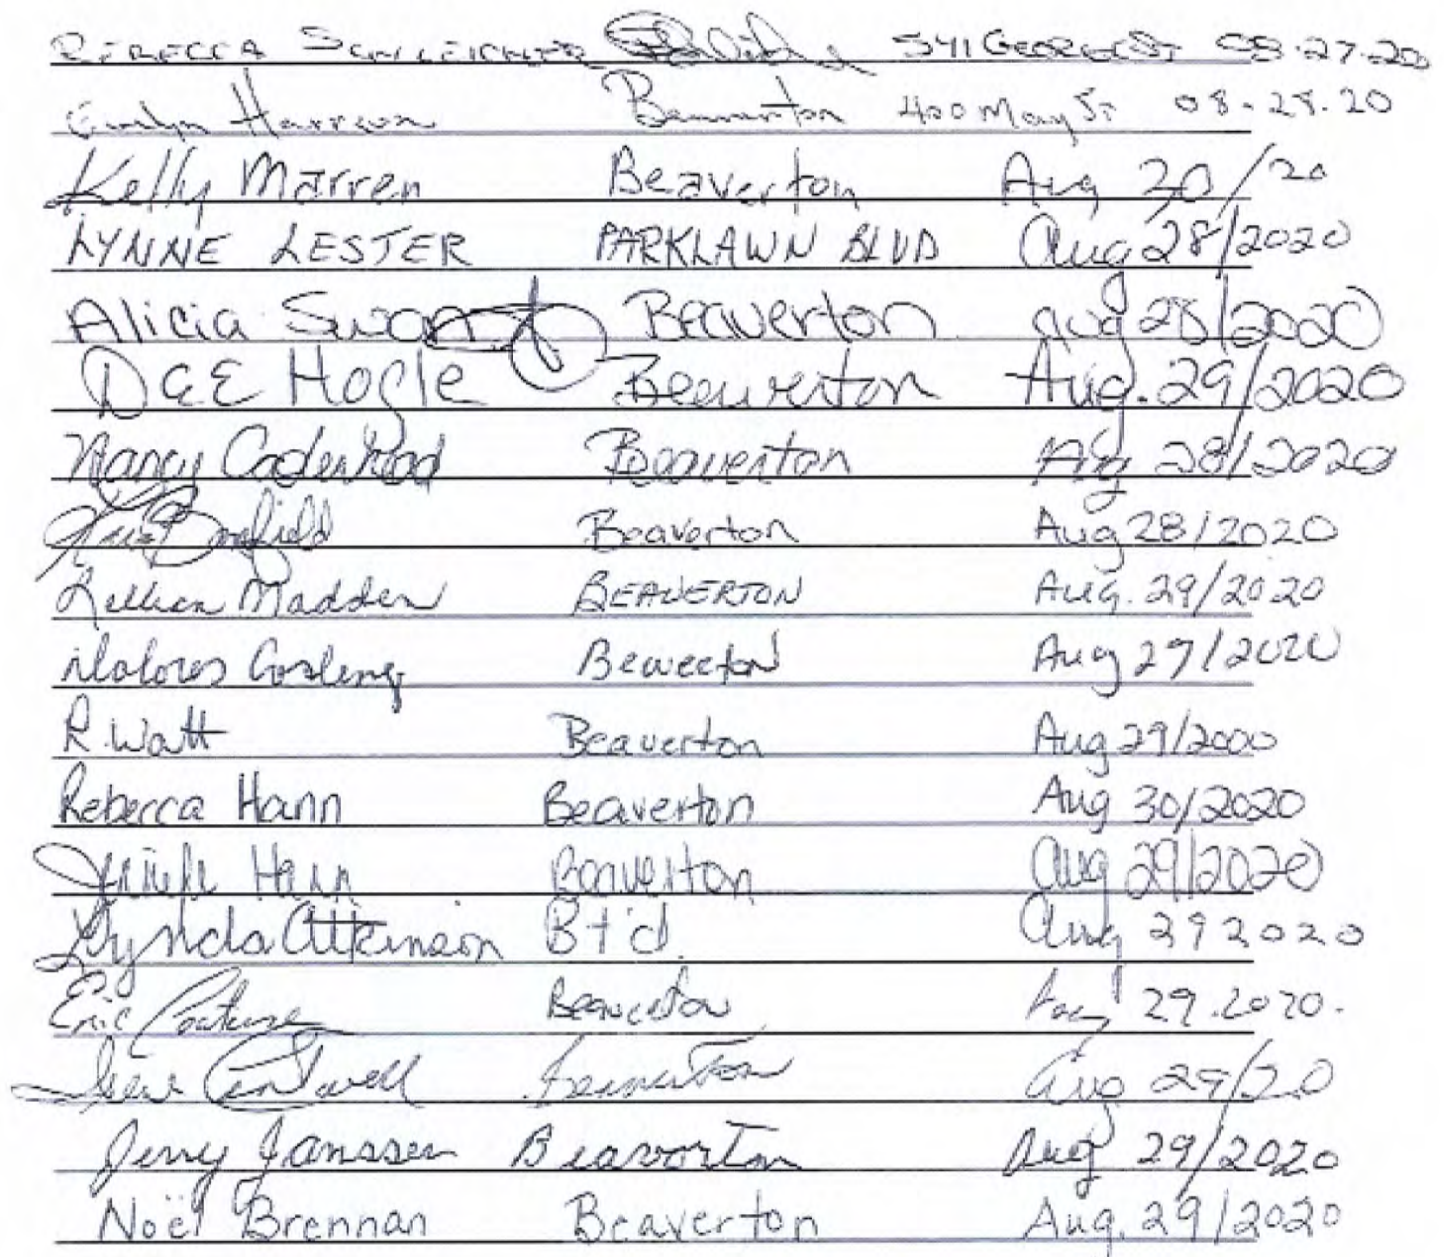 REBECCA SCHLEICHER 541 GEORGE ST 08.27.20
Evelyn Harrison Beaverton 400 May St 08-28.20
Kelly Marren Beaverton Aug 30/20
LYNNE LESTER PARKLAWN BLVD Aug 28/2020
Alicia Swan Beaverton Aug 28/2020
DEE Hogle Beaverton Aug. 29/2020
Nancy Beaverton Aug 28/2020
Beaverton Aug 28/2020
Lillian Madden BEAVERTON Aug. 29/2020
Dolores Gosleng Beaverton Aug 29/2020
R. Watt Beaverton Aug 29/2000
Rebecca Hann Beaverton Aug 30/2020
Hann Beaverton Aug 29/2020
Lynda Atkinson Bt'd. Aug 29 2020
Eric Beaverton Aug 29.2020.
Cantwell Beaverton Aug 29/20
Jerry Janssen Beaverton Aug 29/2020
Noël Brennan Beaverton Aug. 29/2020